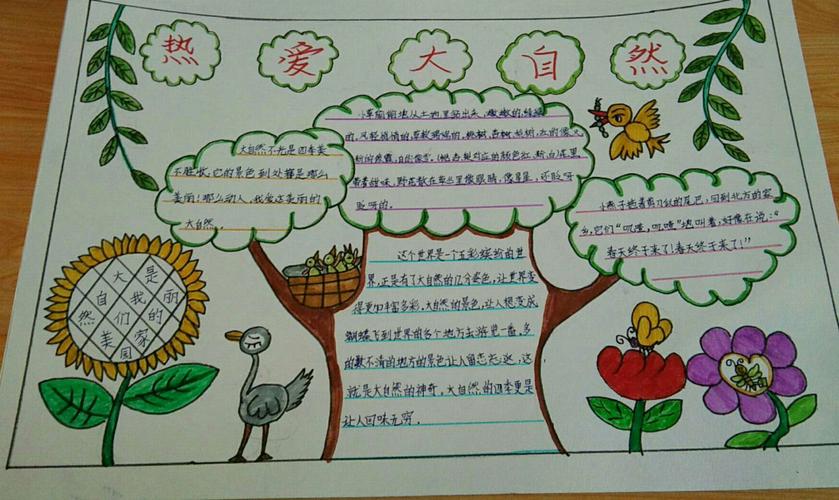 热爱大自然
小草偷偷地从土地里钻出头,嫩嫩的绿绿
的,风轻悄悄的,草软绵绵的,桃树、杏树、梨树、红的像火
粉的像霞,白的像雪,(桃杏梨对应的颜色红、粉、白)花里
带着甜味,野花散在草丛里像眼睛,像星星,还眨呀
眨呀的。
大自然不光是四季美
不胜收,它的景色到处都是那么
美丽!那么动人,我爱这美丽的
大自然。
小燕子拖着剪刀似的尾巴,回到北方的家
乡,它们“叽喳,叽喳”地叫着,好像在说:“
春天终于来了!春天终于来了!”
这个世界是一个五彩缤纷的世
界,正是有了大自然的几分姿色,让世界变
得更加丰富多彩,大自然的景色,让人想变成
蝴蝶飞到世界的各个地方去游览一番,多
的数不清的地方的景色让人留恋忘返,这
就是大自然的神奇,大自然的四季更是
让人回味无穷。
大是
自我丽
然们的
美国家